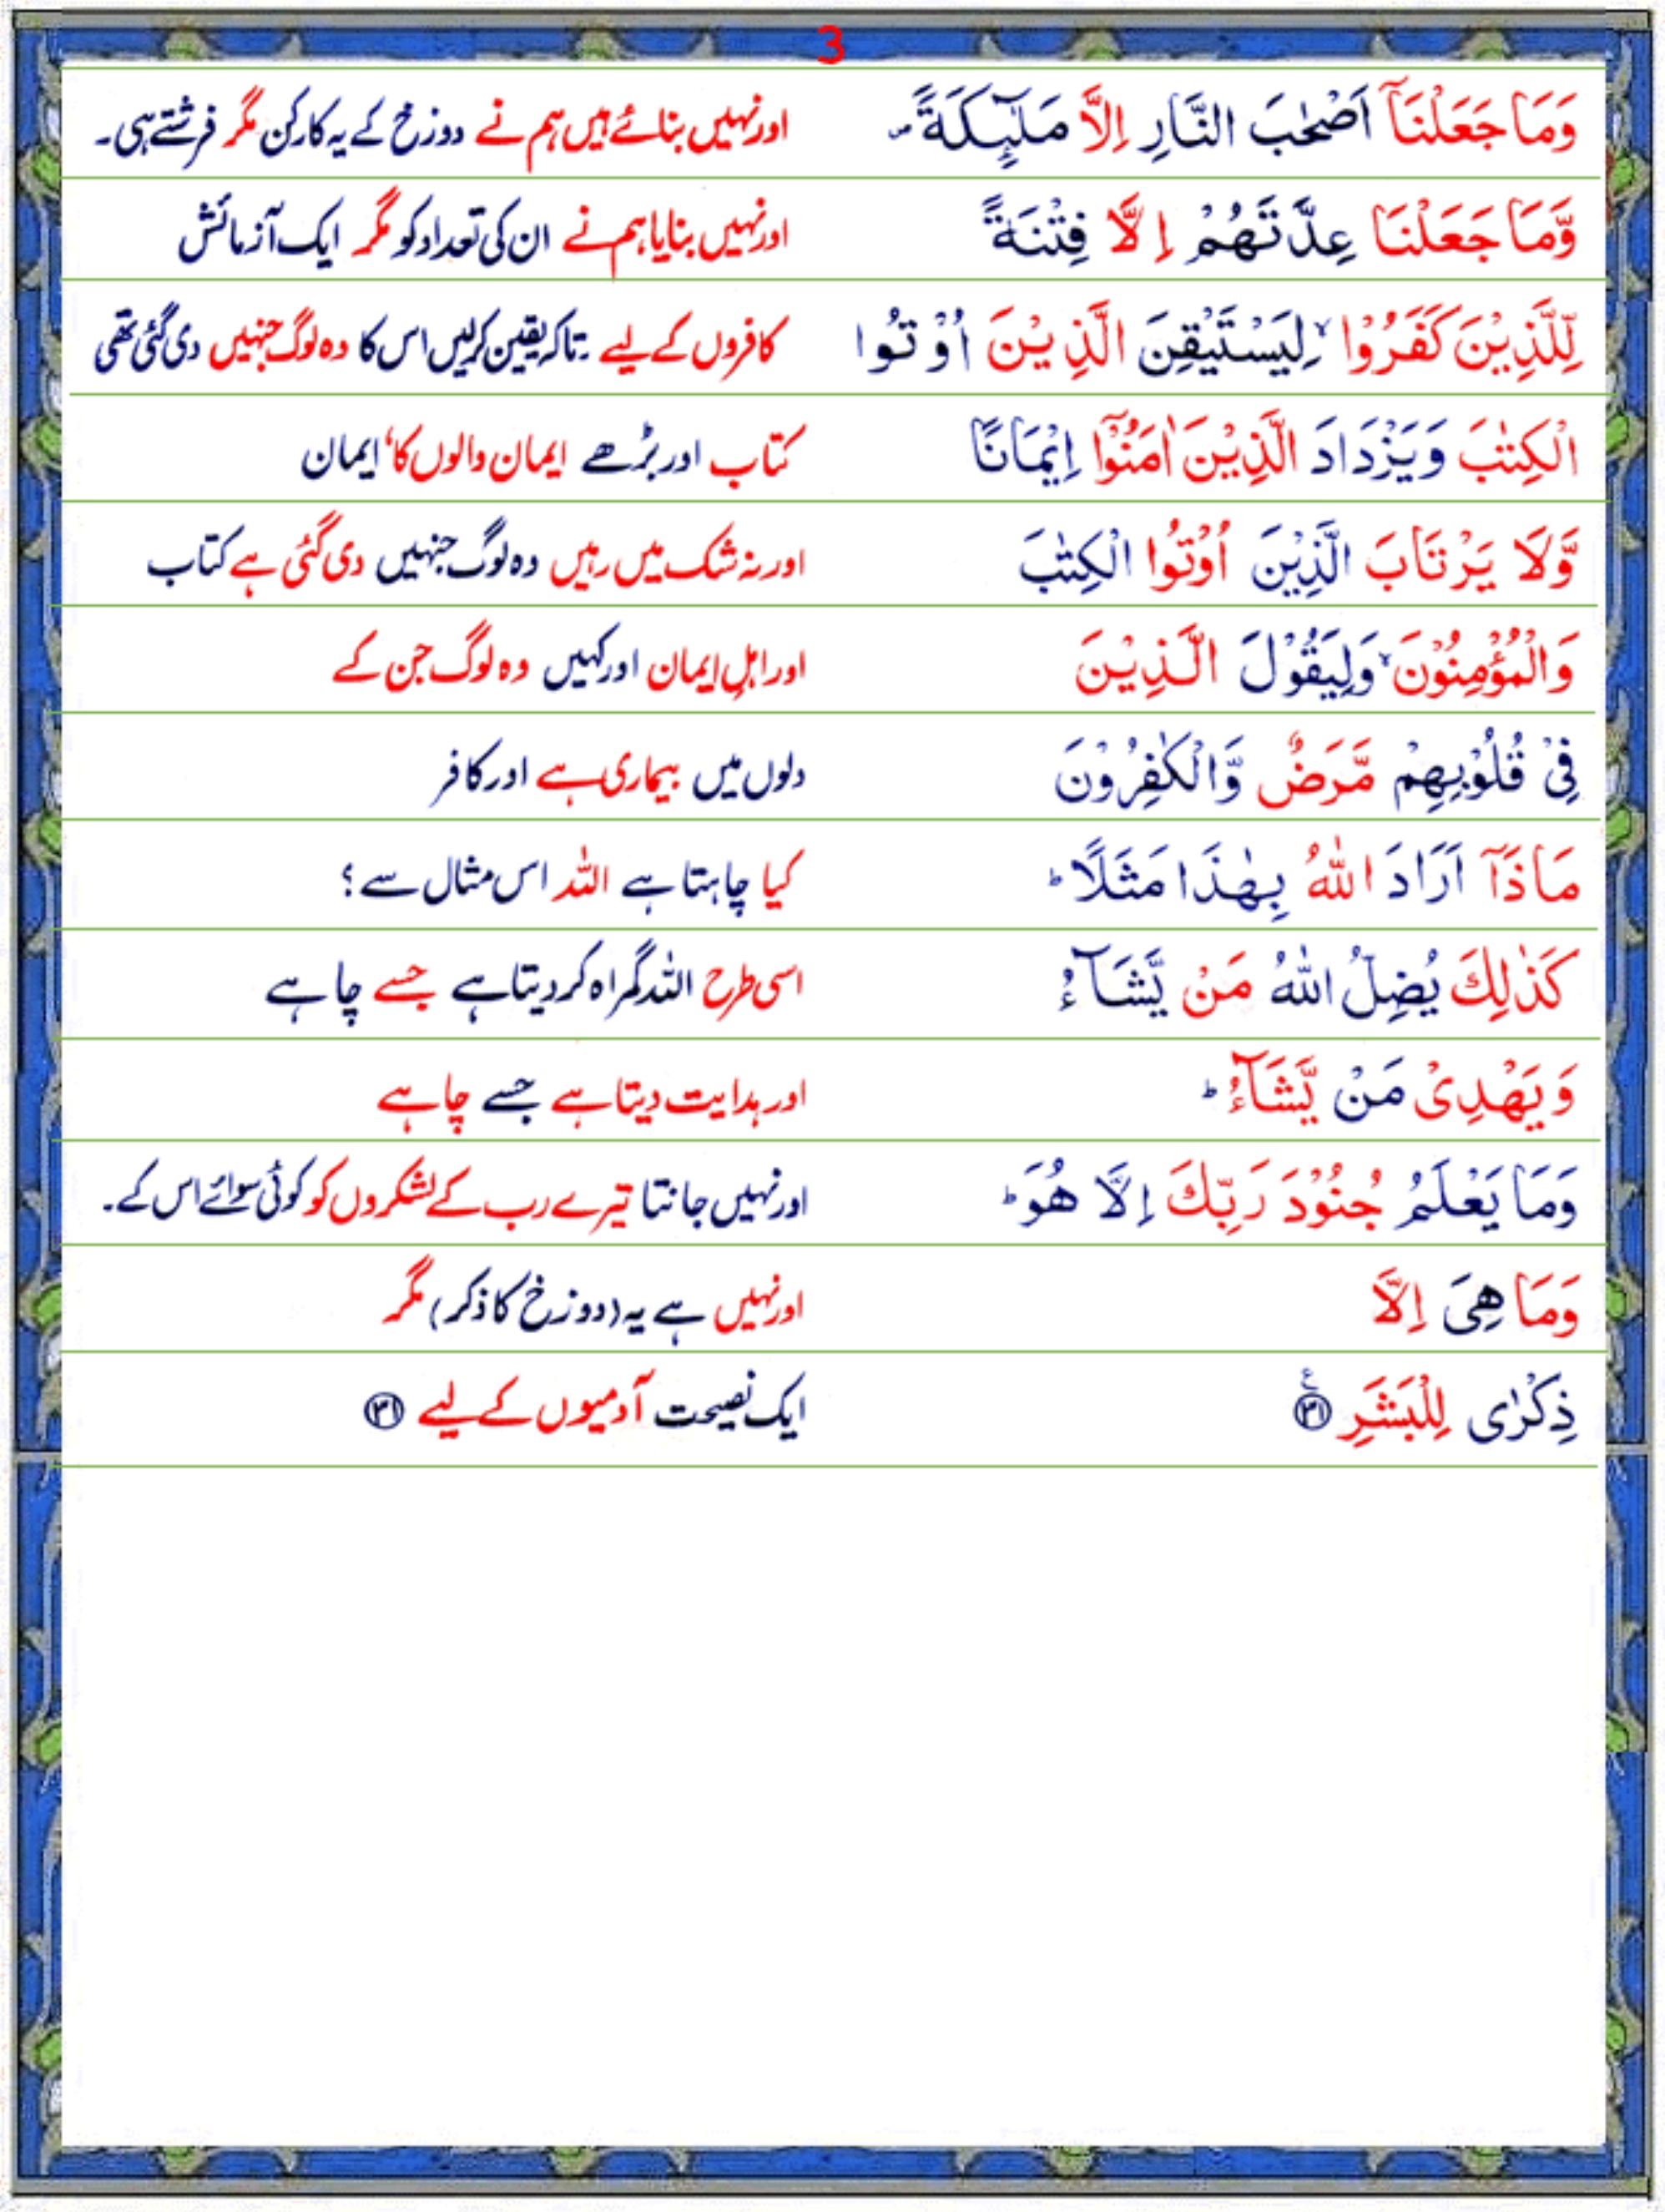 3
وَمَا جَعَلْنَآ اَصْحٰبَ النَّارِ اِلَّا مَلٰٓئِكَةً ۪ اور نہیں بنائے ہیں ہم نے دوزخ کے یہ کارکن مگر فرشتے ہی۔
وَّمَا جَعَلْنَا عِدَّتَهُمْ اِلَّا فِتْنَةً اور نہیں بنایا ہم نے ان کی تعداد کو مگر ایک آزمائش
لِّلَّذِيْنَ كَفَرُوْا ۙ لِيَسْتَيْقِنَ الَّذِيْنَ اُوْتُوا کافروں کے لیے۔ تاکہ یقین کرلیں اس کا وہ لوگ جنہیں دی گئی تھی
الْكِتٰبَ وَيَزْدَادَ الَّذِيْنَ اٰمَنُوْٓا اِيْمَانًا کتاب اور بڑھے ایمان والوں کا‘ ایمان
وَّلَا يَرْتَابَ الَّذِيْنَ اُوْتُوا الْكِتٰبَ اور نہ شک میں رہیں وہ لوگ جنہیں دی گئی ہے کتاب
وَالْمُؤْمِنُوْنَ ۙ وَلِيَقُوْلَ الَّذِيْنَ اور اہلِ ایمان اور کہیں وہ لوگ جن کے
فِيْ قُلُوْبِهِمْ مَّرَضٌ وَّالْكٰفِرُوْنَ دلوں میں بیماری ہے اور کافر
مَاذَآ اَرَادَ اللّٰهُ بِهٰذَا مَثَلًا ؕ کیا چاہتا ہے اللہ اس مثال سے؟
كَذٰلِكَ يُضِلُّ اللّٰهُ مَنْ يَّشَآءُ اسی طرح اللہ گمراہ کر دیتا ہے جسے چاہے
وَيَهْدِيْ مَنْ يَّشَآءُ ؕ اور ہدایت دیتا ہے جسے چاہے
وَمَا يَعْلَمُ جُنُوْدَ رَبِّكَ اِلَّا هُوَ ؕ اور نہیں جانتا تیرے رب کے لشکروں کو کوئی سوائے اس کے۔
وَمَا هِيَ اِلَّا اور نہیں ہے یہ (دوزخ کا ذکر) مگر
ذِكْرٰى لِلْبَشَرِ ۳۱ ع ایک نصیحت آدمیوں کے لیے ۳۱